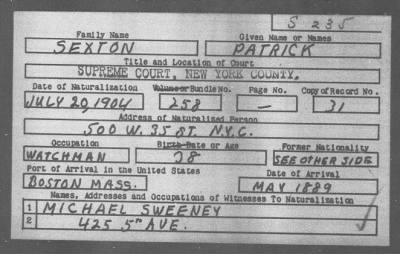 S 235
Family Name Given Name or Names
SEXTON PATRICK
Title and Location of Court
SUPREME COURT, NEW YORK COUNTY.
Date of Naturalization Volume or Bundle No. Page No. Copy of Record No.
JULY 20, 1904 258 — 31
Address of Naturalized Person
500 W. 35 ST. N.Y.C.
Occupation Birth Date or Age Former Nationality
WATCHMAN 38 SEE OTHER SIDE
Port of Arrival in the United States Date of Arrival
BOSTON MASS. MAY 1889
Names, Addresses and Occupations of Witnesses To Naturalization
1 MICHAEL SWEENEY
2 425 5TH AVE.